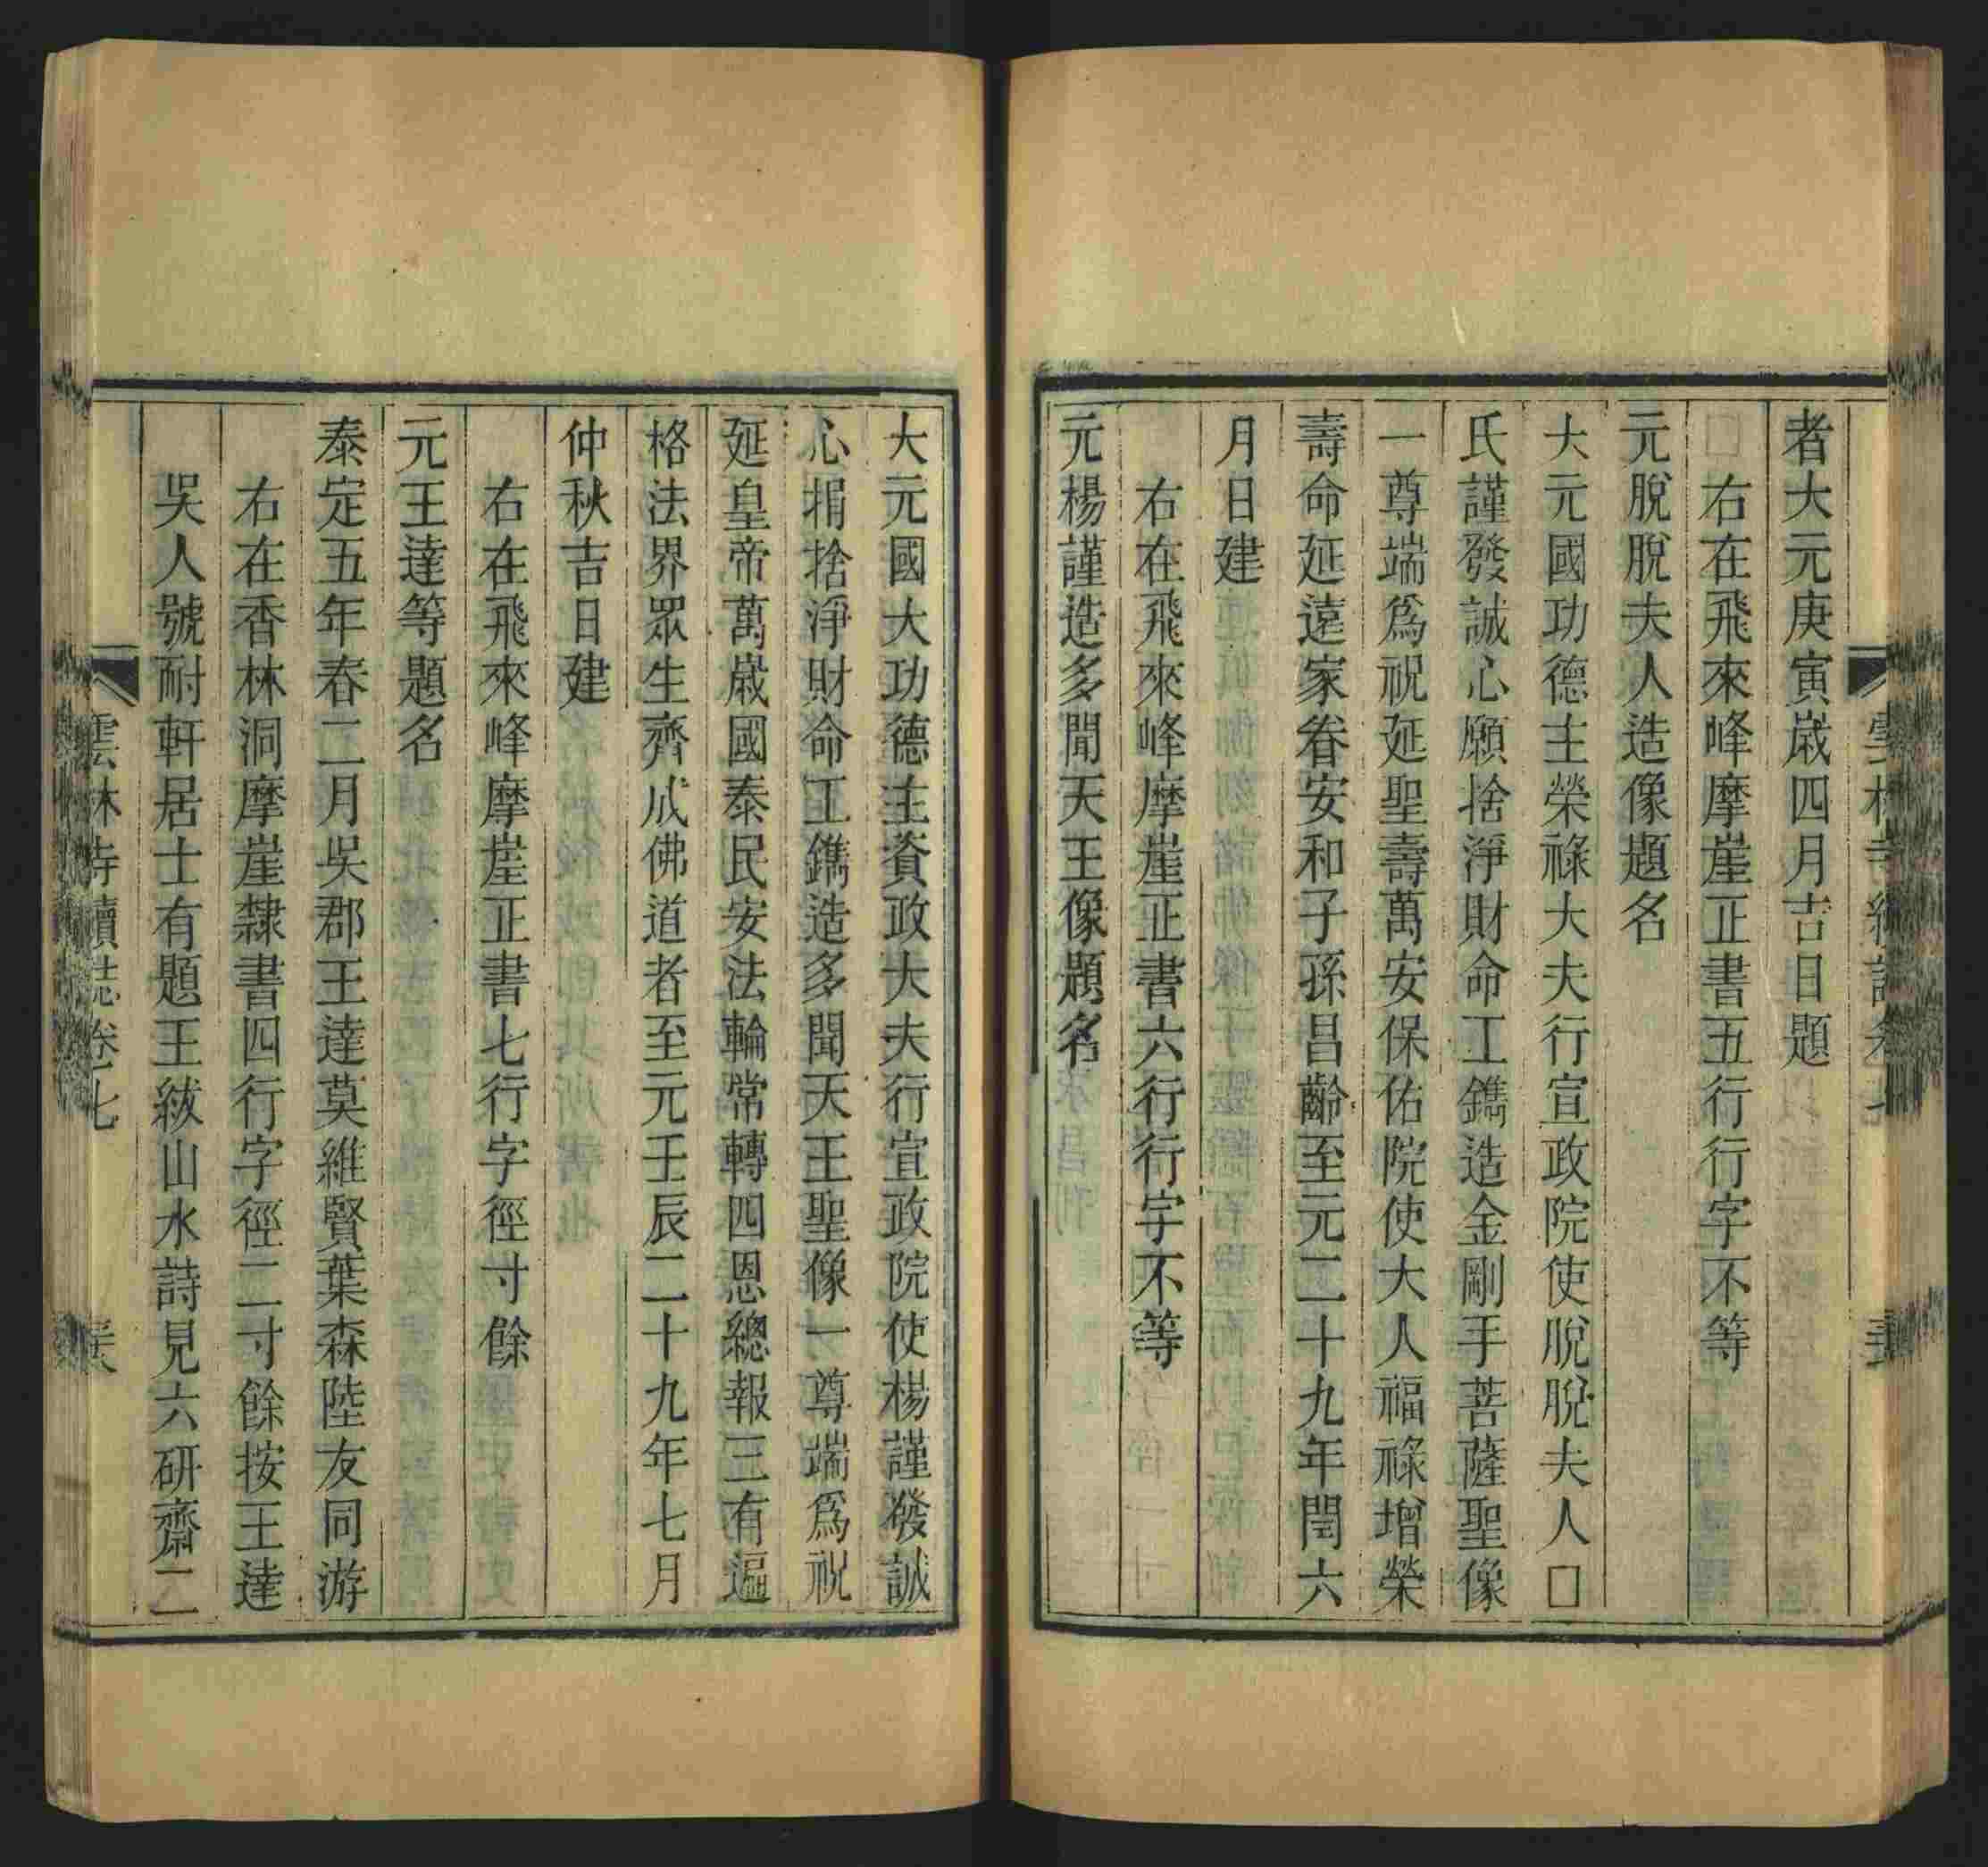 者大元庚寅歲四月吉日題
□右在飛來峰摩崖正書五行行字不等
元脫脫夫人造像題名
大元國功德主榮祿大夫行宣政院使脫脫夫人□
氏謹發誠心願捨淨財命工鐫造金剛手菩薩聖像
一尊端爲祝延聖壽萬安保佑院使大人福祿增榮
壽命延遠家眷安和子孫昌齡至元二十九年閏六
月日建
右在飛來峰摩崖正書六行行字不等
元楊謹造多聞天王像題名
大元國大功德主資政大夫行宣政院使楊謹發誠
心捐捨淨財命工鐫造多聞天王聖像一尊端爲祝
延皇帝萬歲國泰民安法輪常轉四恩總報三有遍
格法界眾生齊成佛道者至元壬辰二十九年七月
仲秋吉日建
右在飛來峰摩崖正書七行字徑寸餘
元王達等題名
泰定五年春二月吳郡王達莫維賢葉森陸友同游
右在香林洞摩崖隸書四行字徑二寸餘按王達
吳人號耐軒居士有題王紱山水詩見六研齋二
雲林寺續誌卷七